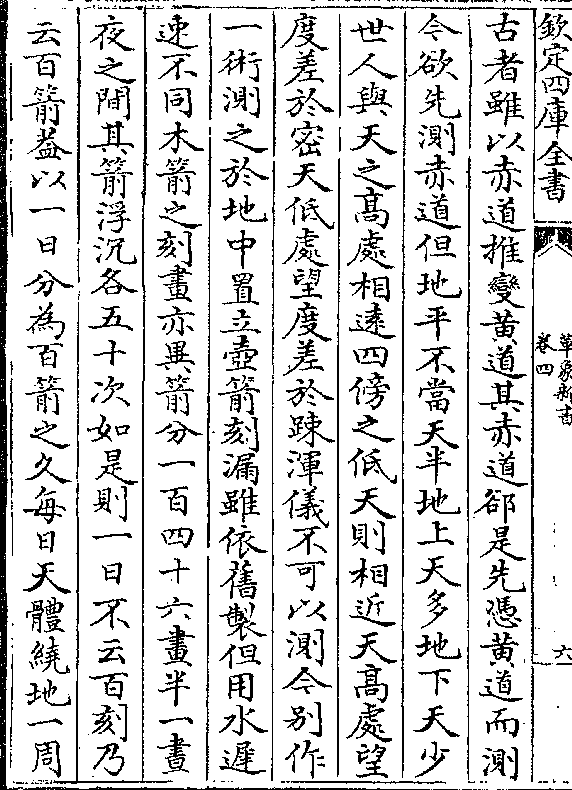 欽定四庫全書
革象新書
卷四
六
古者雖以赤道推變黄道其赤道郤是先憑黄道而測
今欲先測赤道但地平不當天半地上天多地下天少
世人與天之髙處相逺四傍之低天則相近天髙處望
度差於宻天低處望度差於踈渾儀不可以測今别作
一術測之於地中置立壺箭刻漏雖依舊製但用水遲
速不同木箭之刻畫亦異箭分一百四十六畫半一晝
夜之間其箭浮沉各五十次如是則一日不云百刻乃
云百箭葢以一日分為百箭之久每日天體繞地一周